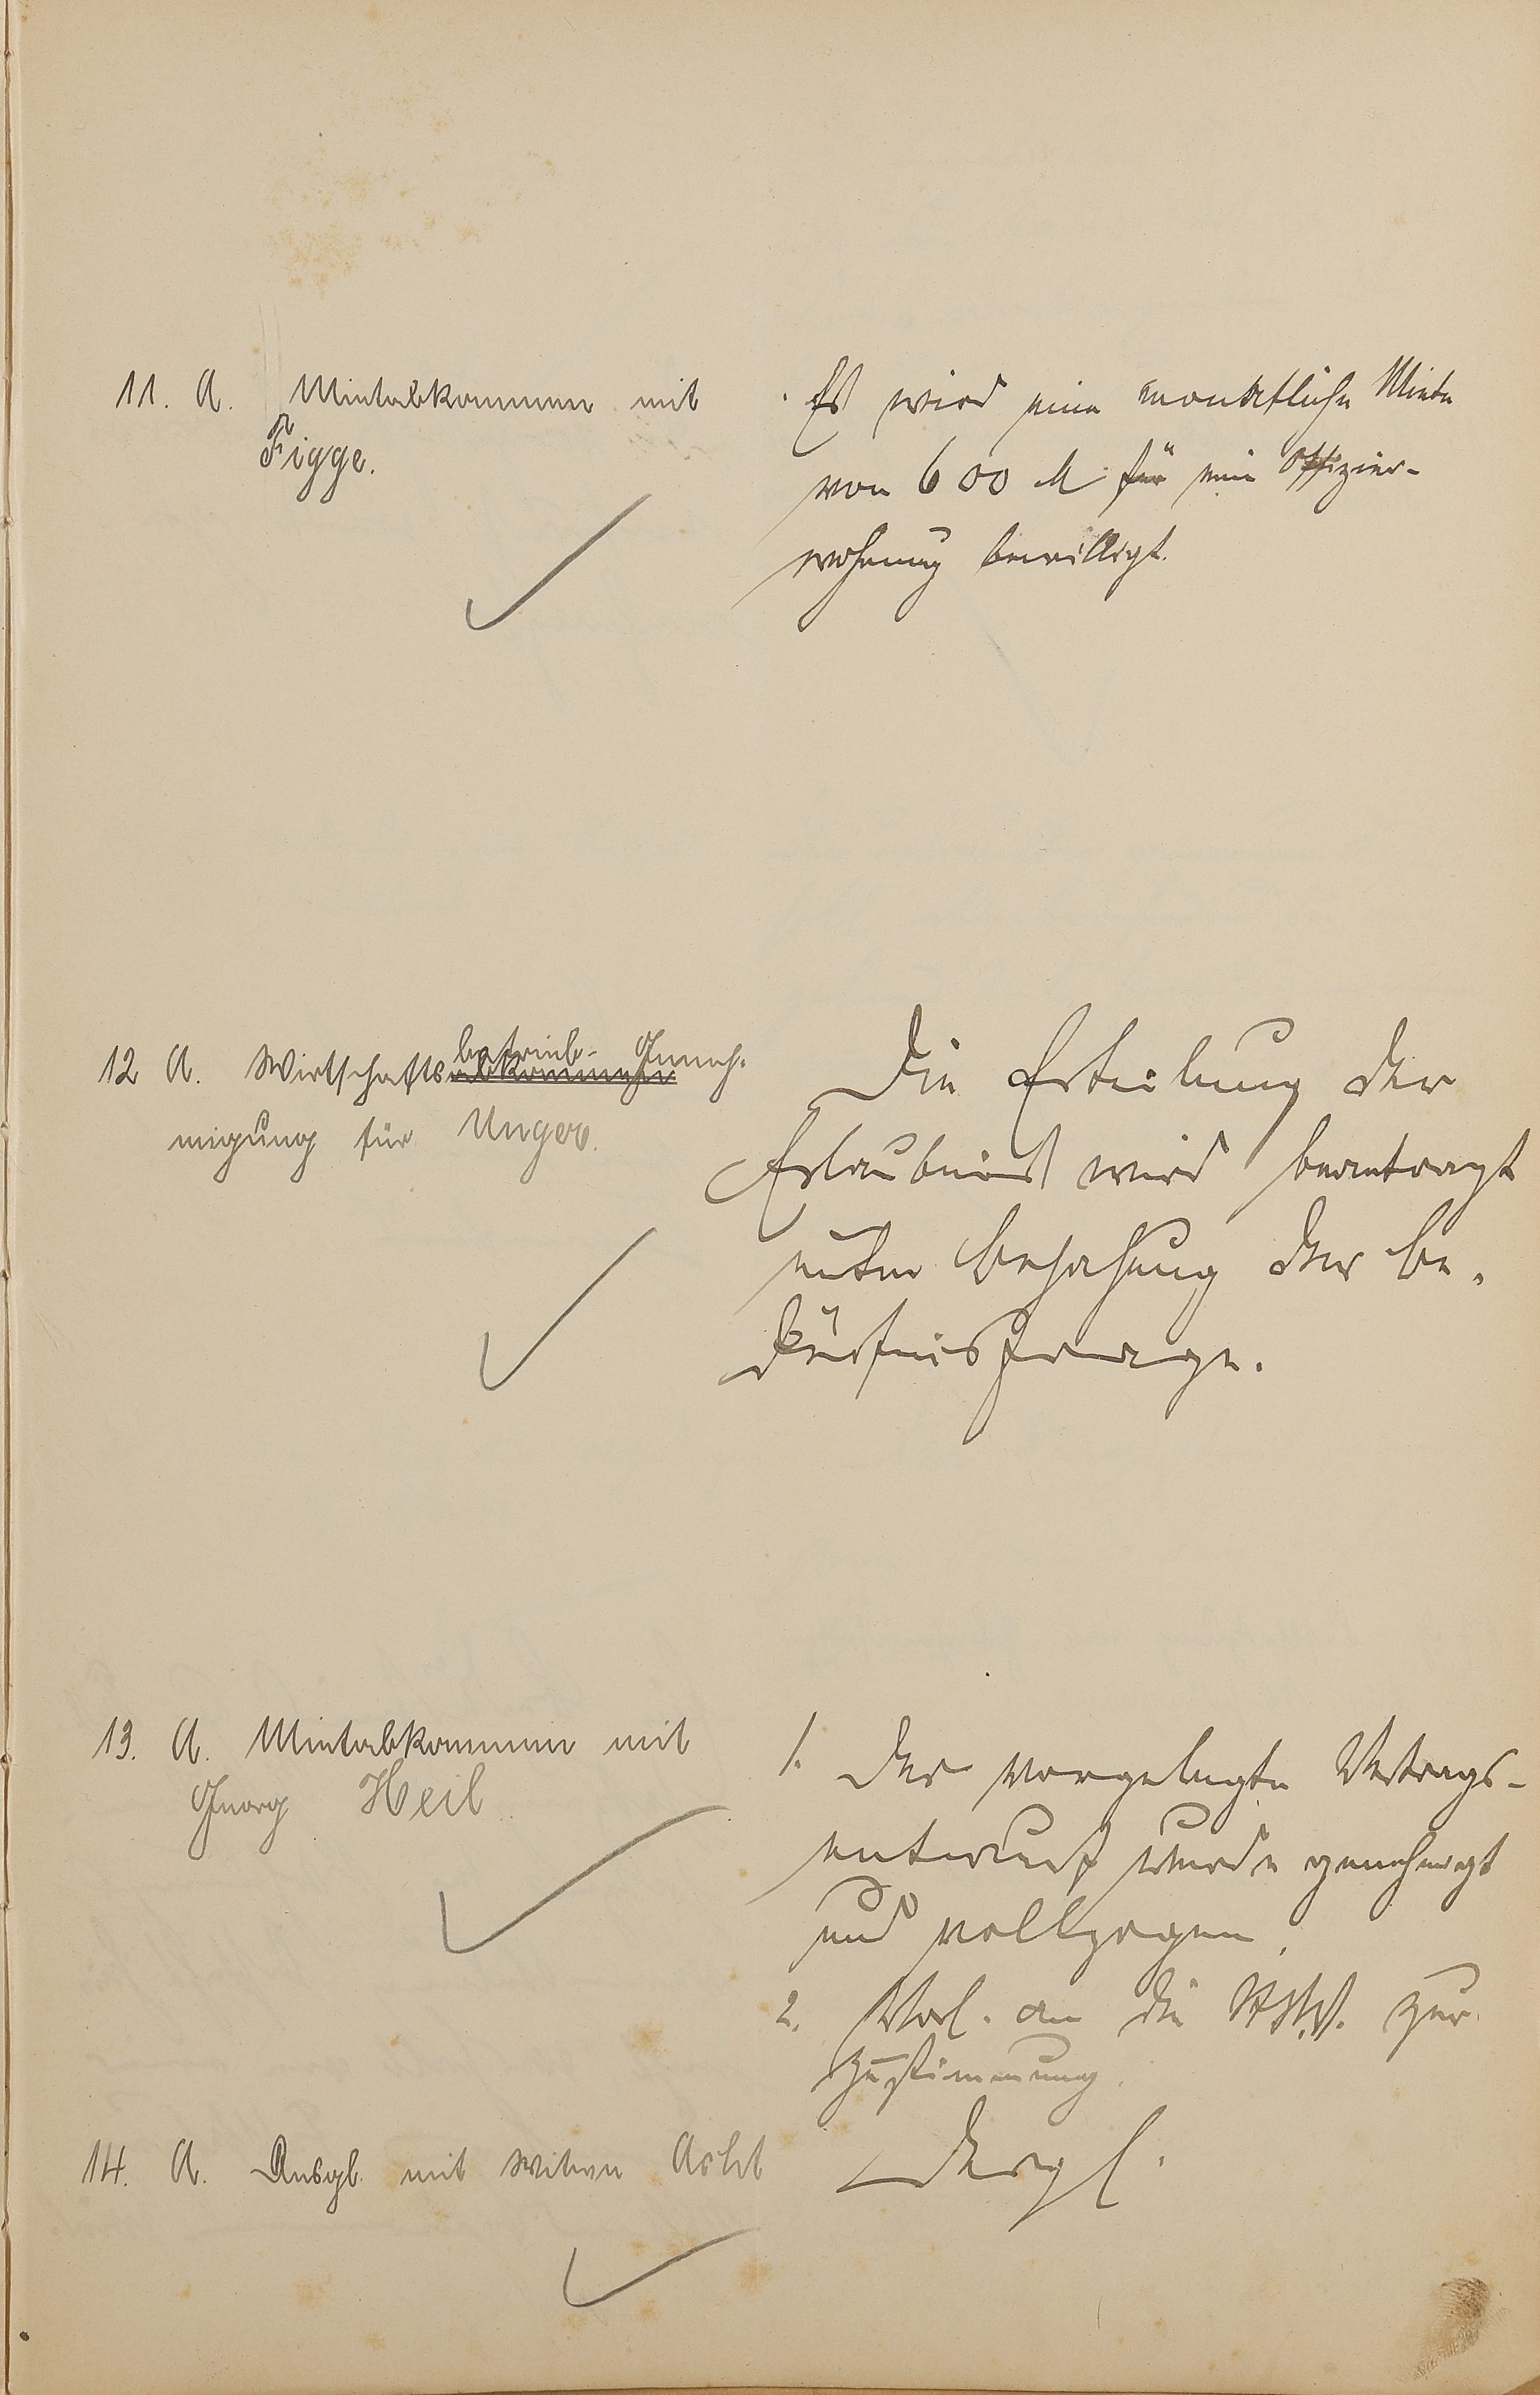 11. A. Mietabkommen mit
Figge.
Es wird eine monatliche Miete
von 600 M für eine Offizier-
wohnung bewilligt.
12 A. Wirtschaftsabkommen betrieb- Geneh-
migung für Unger.
Die Erteilung der
Erlaubnis wird beantragt
unter Bejahung der Be-
dürfnisfrage.
13. A. Mietabkommen mit
Georg Heil
1. Der vorgelegte Vertrags-
entwurf wurde genehmigt
und vollzogen.
2. Vorl. an die zur
Zustimmung.
14. A. Ausgl. mit Witwe
Dergl.